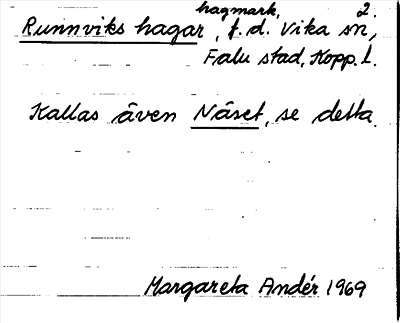 hagmark, 2.
Runnviks hagar, f.d. Vika sn,
Falu stad, Kopp. l.
Kallas även Näset, se detta.
Margareta Andér 1969